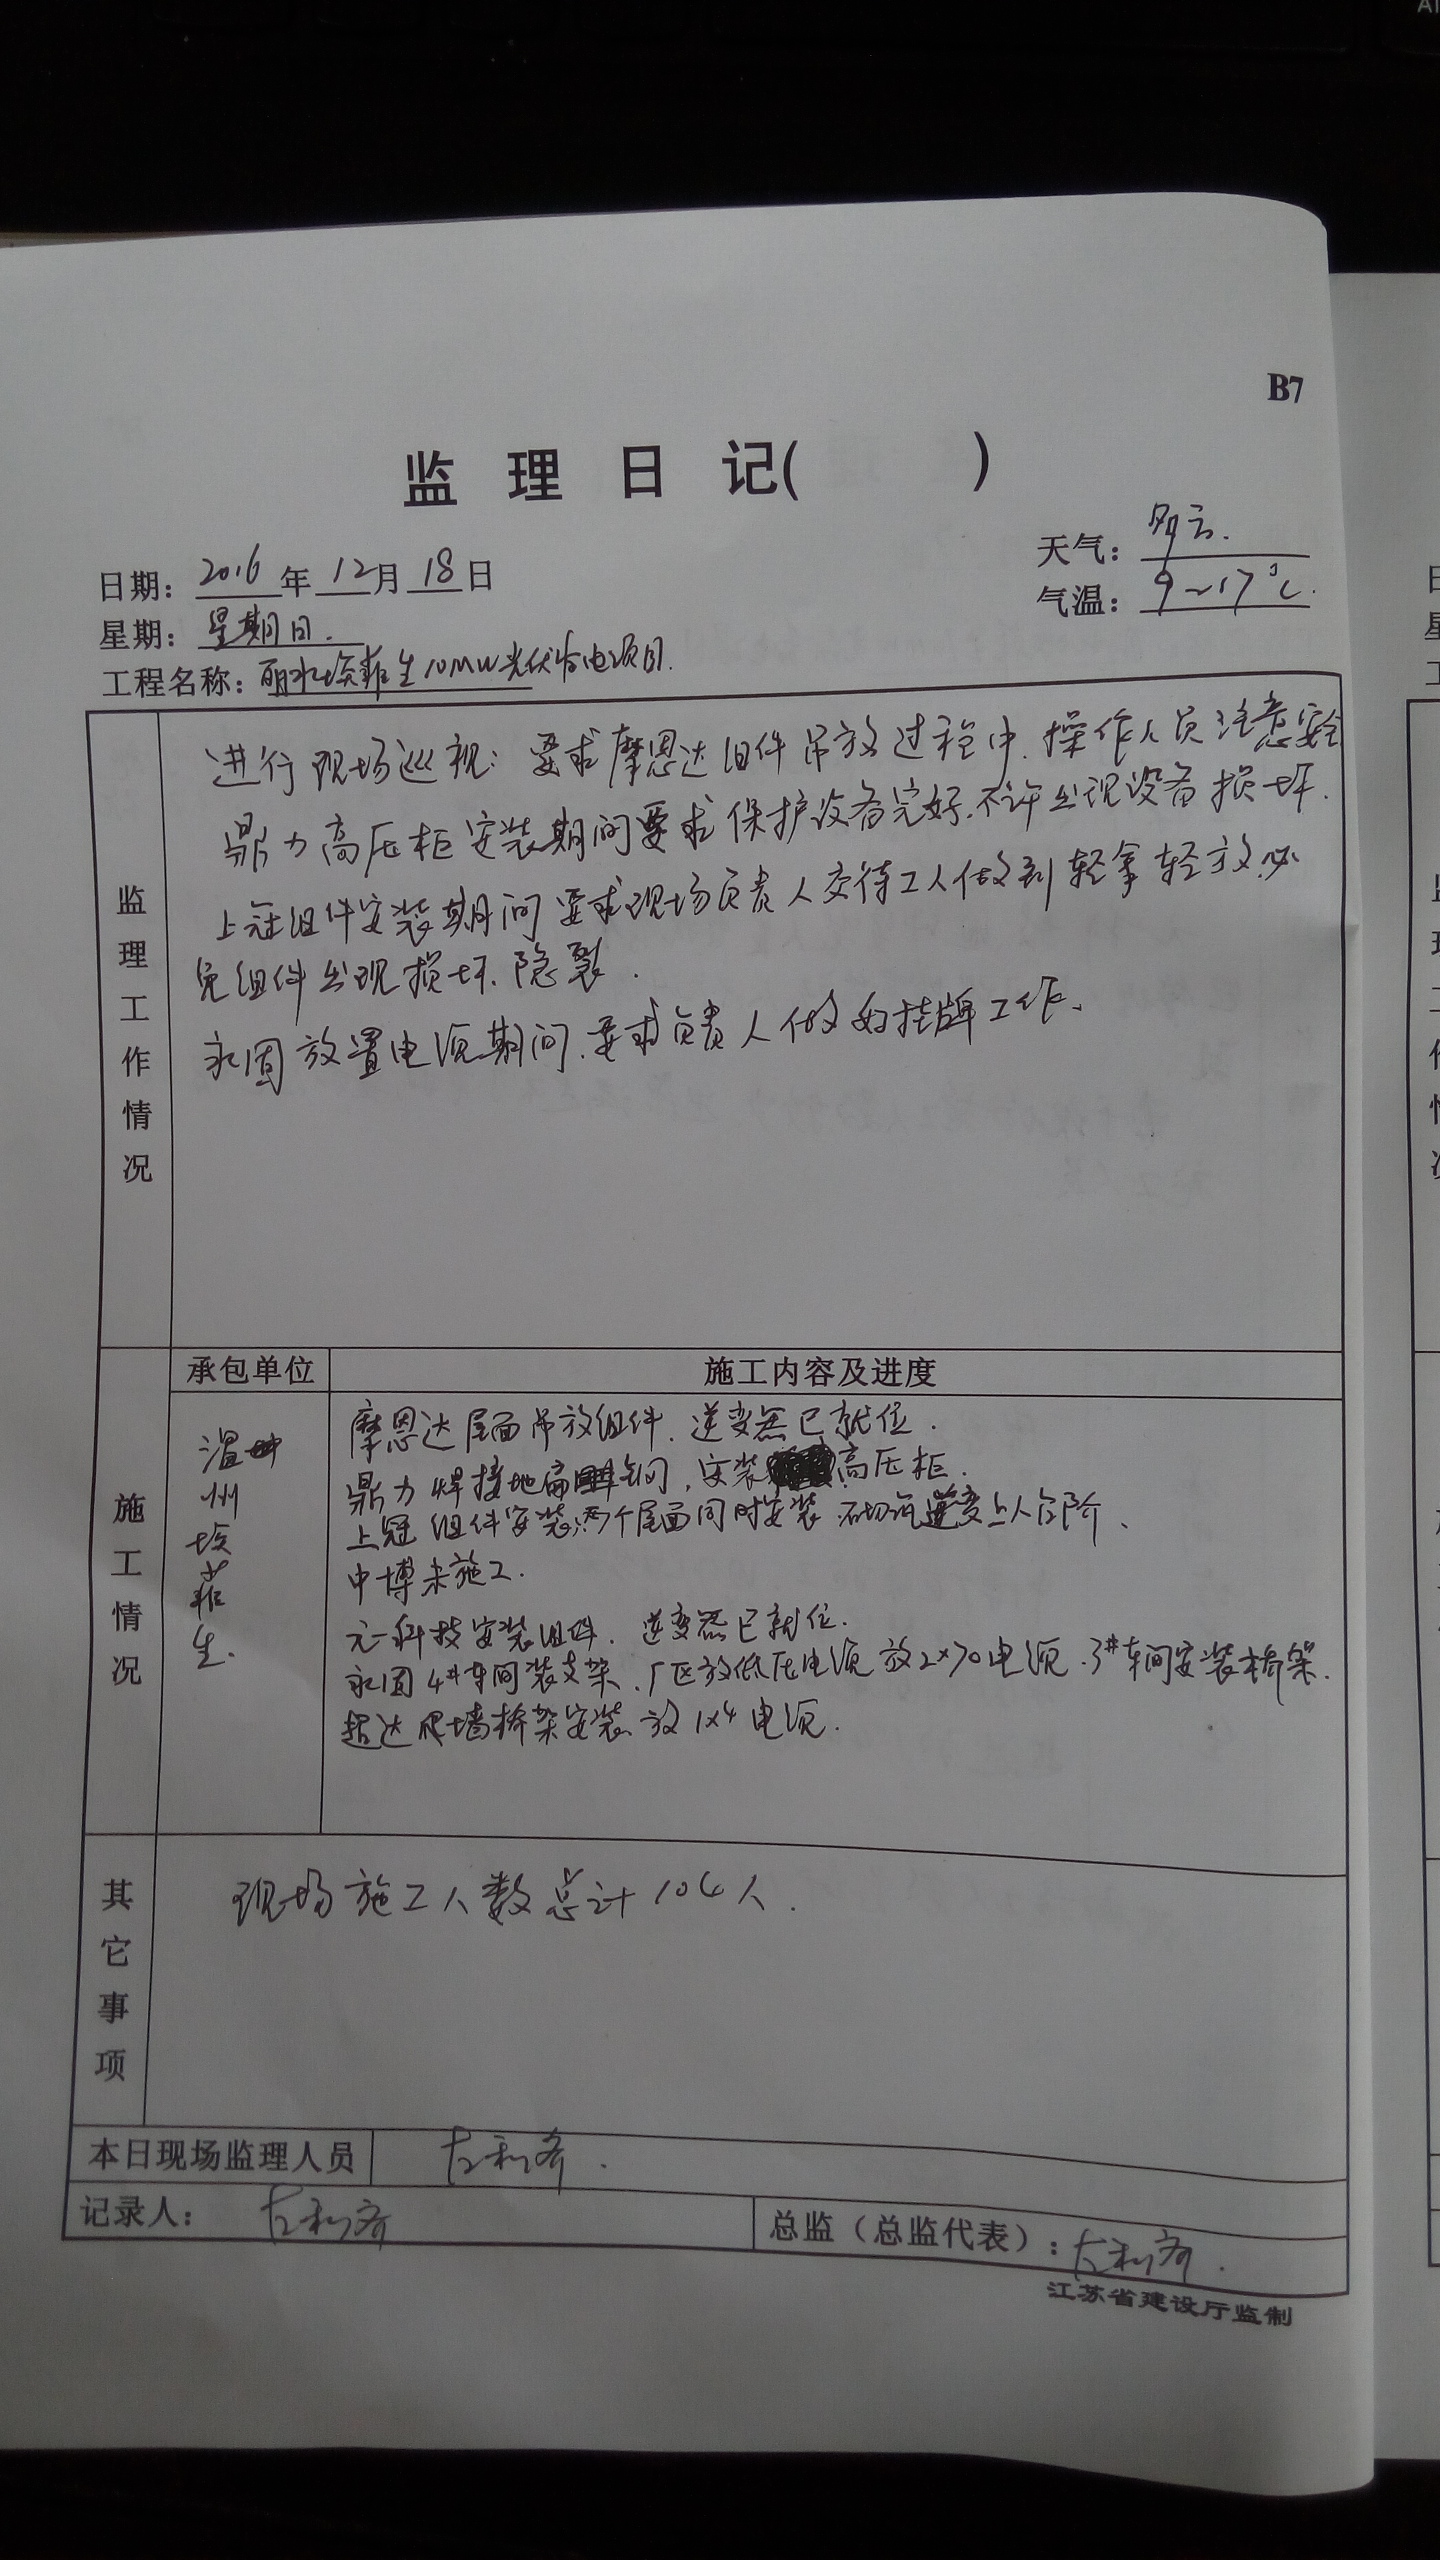 B7
监理日记( )
日期: 2016 年 12 月 18 日
天气: 多云.
星期: 星期日.
气温: 9~17℃.
工程名称: 丽水埃菲生10MW光伏发电项目.
监理工作情况
进行现场巡视: 要求摩恩达组件吊放过程中. 操作人员注意安全
鼎力高压柜安装期间要求保护设备完好. 不许出现设备损坏.
上冠组件安装期间要求现场负责人交待工人做到轻拿轻放. 以
免组件出现损坏. 隐裂.
永固放置电源期间. 要求负责人做好挂牌工作.
施工情况
承包单位
施工内容及进度
温州埃菲生.
摩恩达屋面吊放组件. 逆变器已就位.
鼎力焊接地扁钢, 安装高压柜.
上冠组件安装, 两个屋面同时安装. 逆变上人台阶.
中博未施工.
元一科技安装组件. 逆变器已就位.
永固4#车间装支架. 厂区放低压电源放2×70电源. 3#车间安装桥架.
超达爬墙桥架安装. 放1×4电源.
其它事项
现场施工人数总计104人.
本日现场监理人员
记录人:
总监（总监代表）:
江苏省建设厅监制